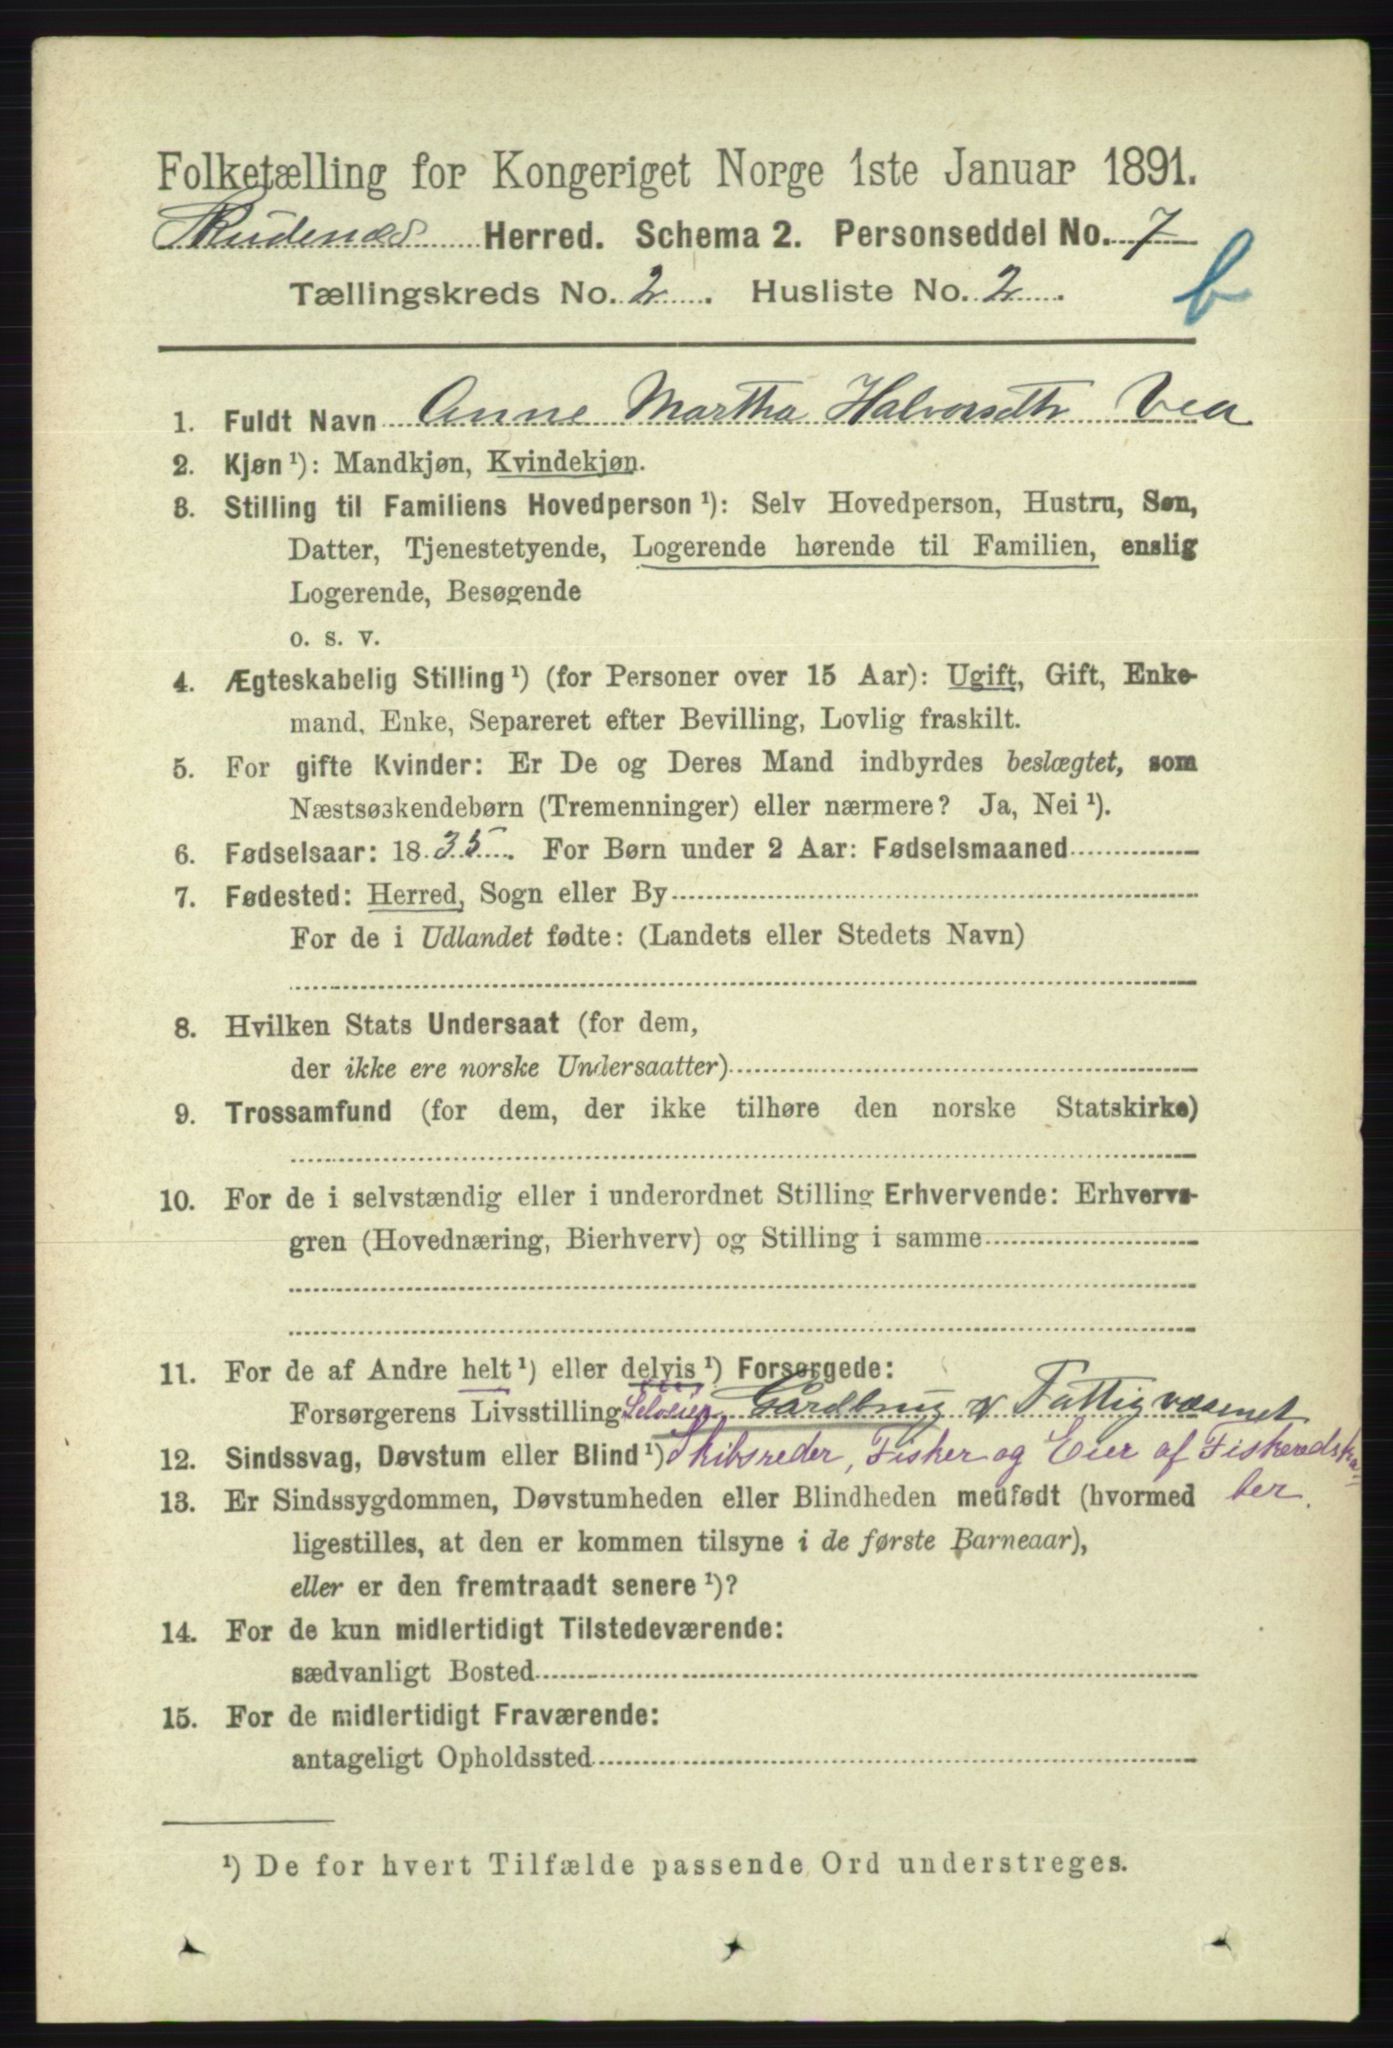 Folketælling for Kongeriget Norge 1ste Januar 1891.
Skudenæs Herred. Schema 2. Personseddel No. 7
Tællingskreds No. 2. Husliste No. 2. b
1. Fuldt Navn Anne Martha Halvorsdtr Vea
2. Kjøn ¹): Mandkjøn, Kvindekjøn.
3. Stilling til Familiens Hovedperson ¹): Selv Hovedperson, Hustru, Søn,
Datter, Tjenestetyende, Logerende hørende til Familien, enslig
Logerende, Besøgende
o. s. v.
4. Ægteskabelig Stilling ¹) (for Personer over 15 Aar): Ugift, Gift, Enke-
mand, Enke, Separeret efter Bevilling, Lovlig fraskilt.
5. For gifte Kvinder: Er De og Deres Mand indbyrdes beslægtet, som
Næstsøskendebørn (Tremenninger) eller nærmere? Ja, Nei ¹).
6. Fødselsaar: 1835. For Børn under 2 Aar: Fødselsmaaned
7. Fødested: Herred, Sogn eller By
For de i Udlandet fødte: (Landets eller Stedets Navn)
8. Hvilken Stats Undersaat (for dem,
der ikke ere norske Undersaatter)
9. Trossamfund (for dem, der ikke tilhøre den norske Statskirke)
10. For de i selvstændig eller i underordnet Stilling Erhvervende: Erhvervs-
gren (Hovednæring, Bierhverv) og Stilling i samme
11. For de af Andre helt ¹) eller delvis ¹) Forsørgede:
Forsørgerens Livsstilling Selveier, Gardbrug v Fattigvæsenet
12. Sindssvag, Døvstum eller Blind ¹) Skibsreder, Fisker og Eier af Fiskeredska-
13. Er Sindssygdommen, Døvstumheden eller Blindheden medfødt (hvormed ber.
ligestilles, at den er kommen tilsyne i de første Barneaar),
eller er den fremtraadt senere ¹)?
14. For de kun midlertidigt Tilstedeværende:
sædvanligt Bosted
15. For de midlertidigt Fraværende:
antageligt Opholdssted
¹) De for hvert Tilfælde passende Ord understreges.